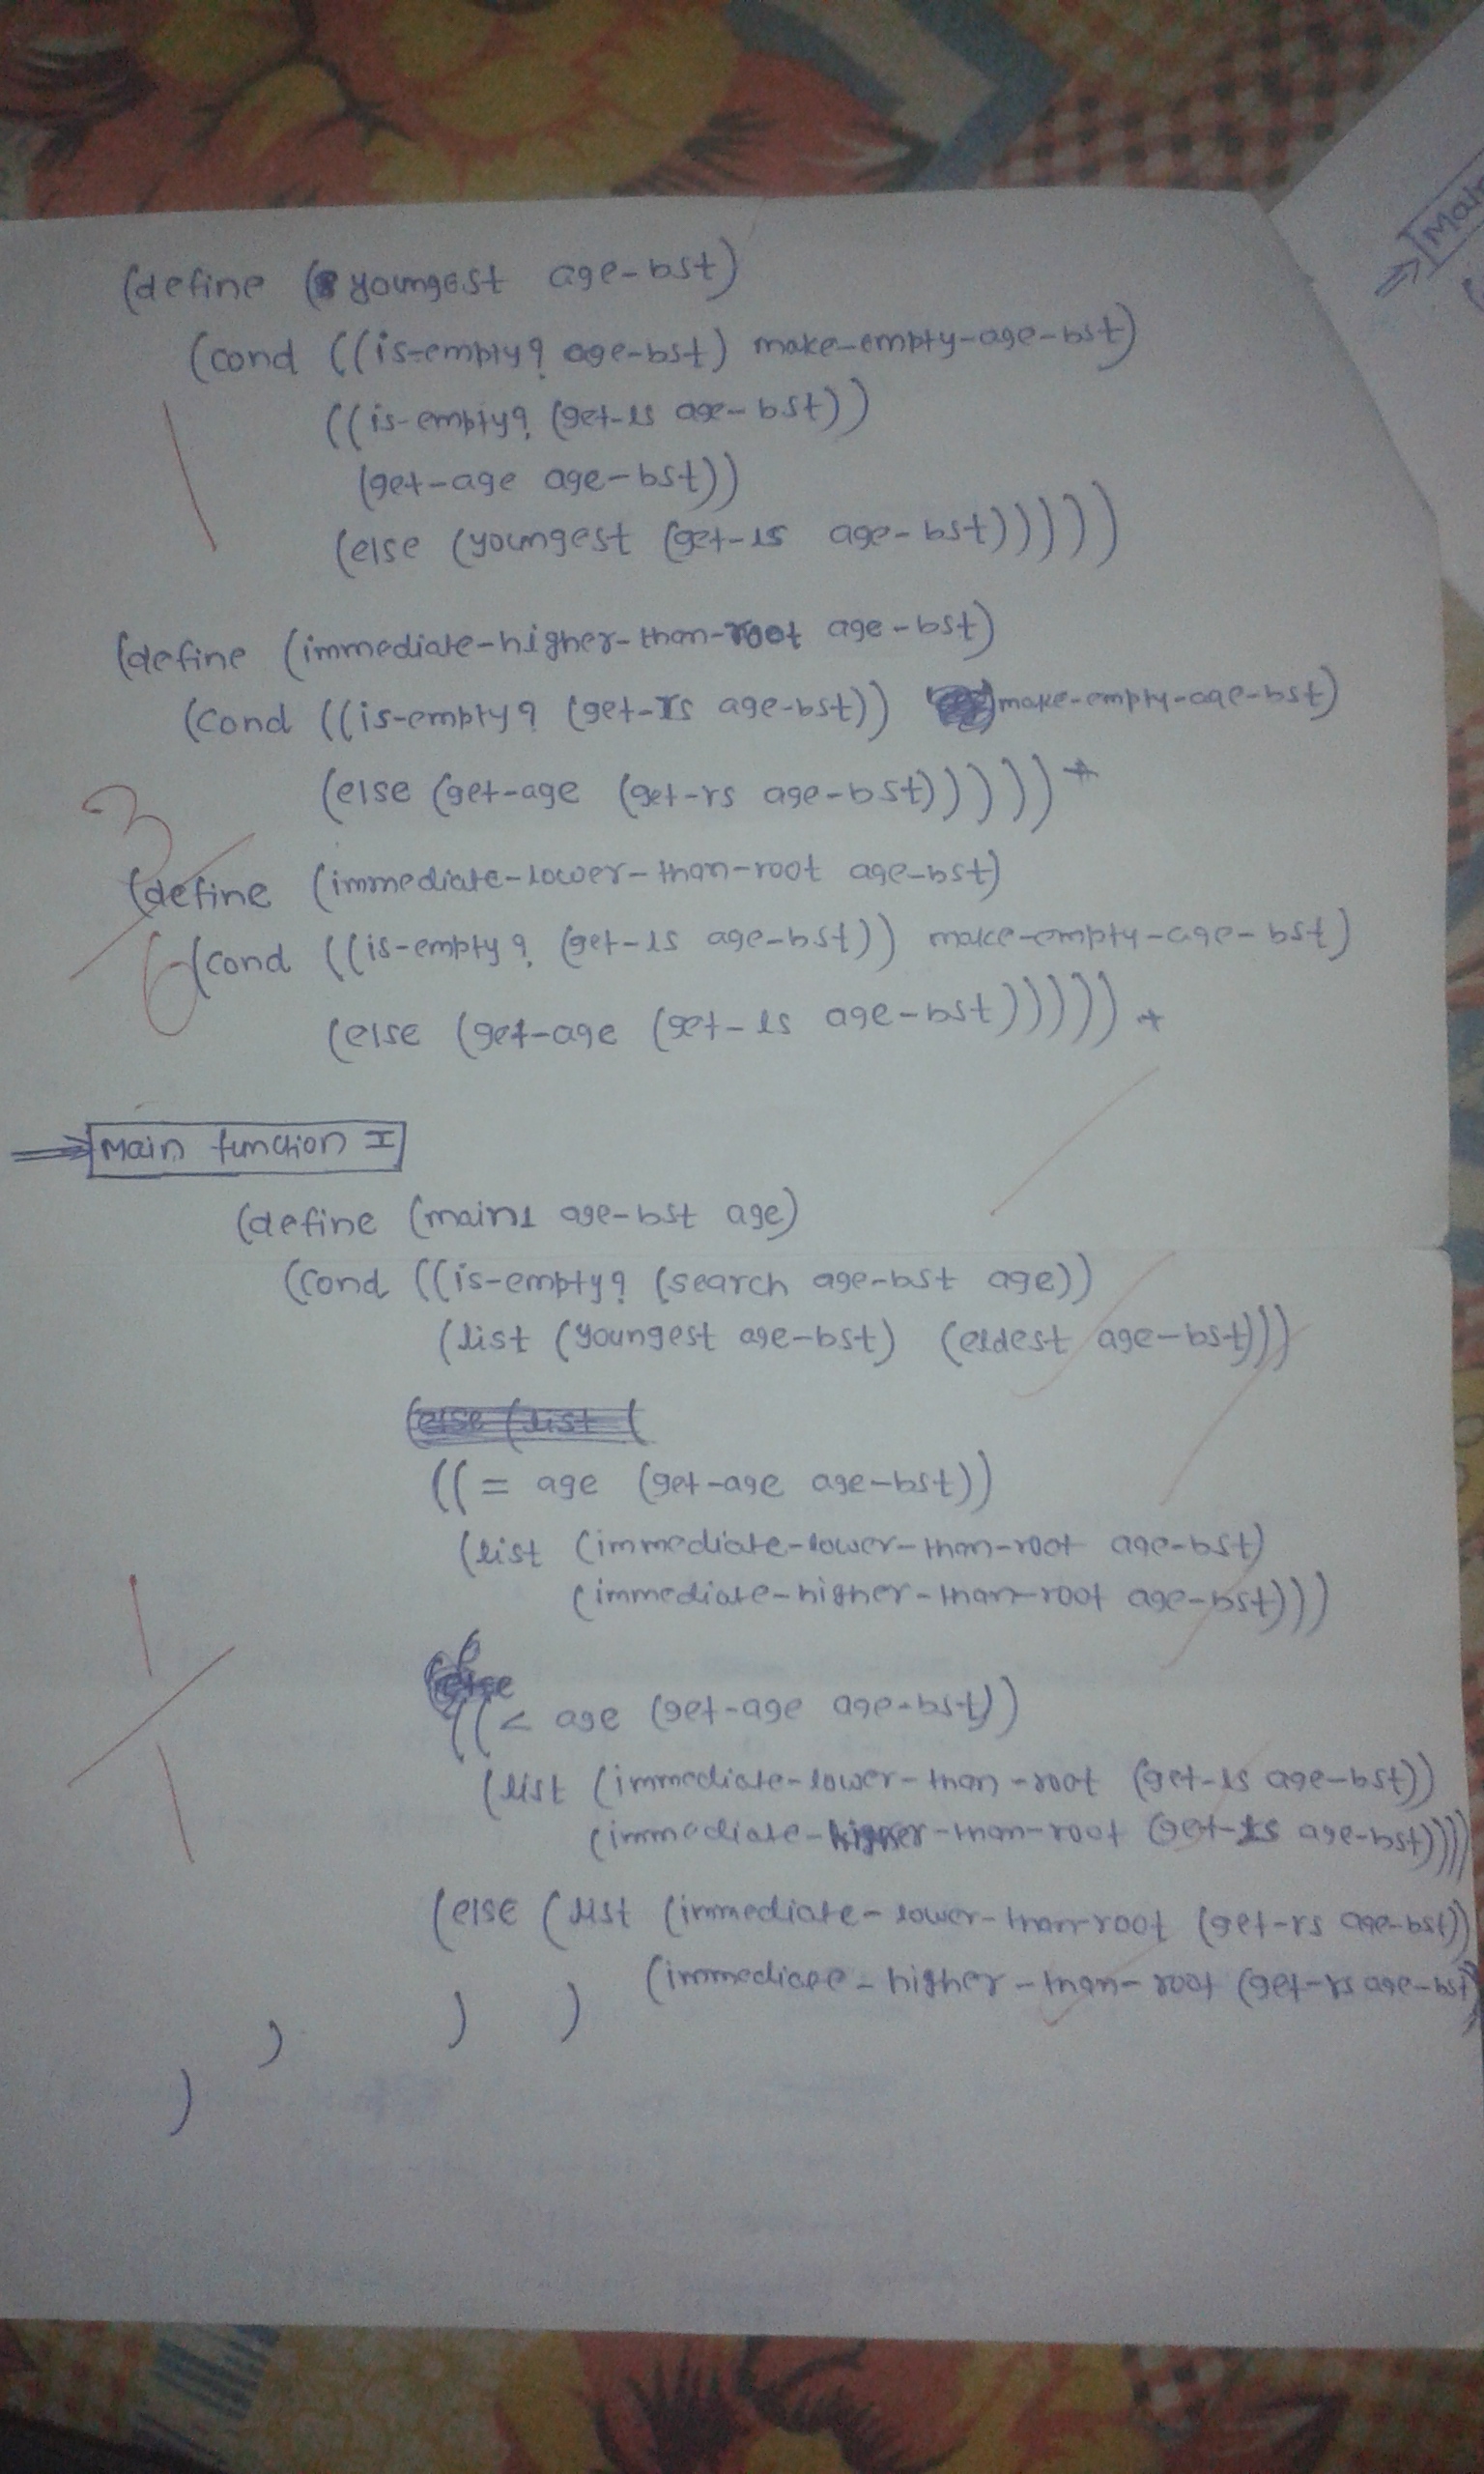 (define (youngest age-bst)
(cond ((is-empty? age-bst) make-empty-age-bst)
((is-empty? (get-ls age-bst))
(get-age age-bst))
(else (youngest (get-ls age-bst)))))
(define (immediate-higher-than-root age-bst)
(cond ((is-empty? (get-rs age-bst)) make-empty-age-bst)
(else (get-age (get-rs age-bst))))) *
(define (immediate-lower-than-root age-bst)
(cond ((is-empty? (get-ls age-bst)) make-empty-age-bst)
(else (get-age (get-ls age-bst))))) *
3/6
Main function I
(define (main1 age-bst age)
(cond ((is-empty? (search age-bst age))
(list (youngest age-bst) (eldest age-bst)))
(else (list (
((= age (get-age age-bst))
(list (immediate-lower-than-root age-bst)
(immediate-higher-than-root age-bst)))
((< age (get-age age-bst))
(list (immediate-lower-than-root (get-ls age-bst))
(immediate-higher-than-root (get-ls age-bst))))
(else (list (immediate-lower-than-root (get-rs age-bst))
(immediate-higher-than-root (get-rs age-bst))
) )
)
)